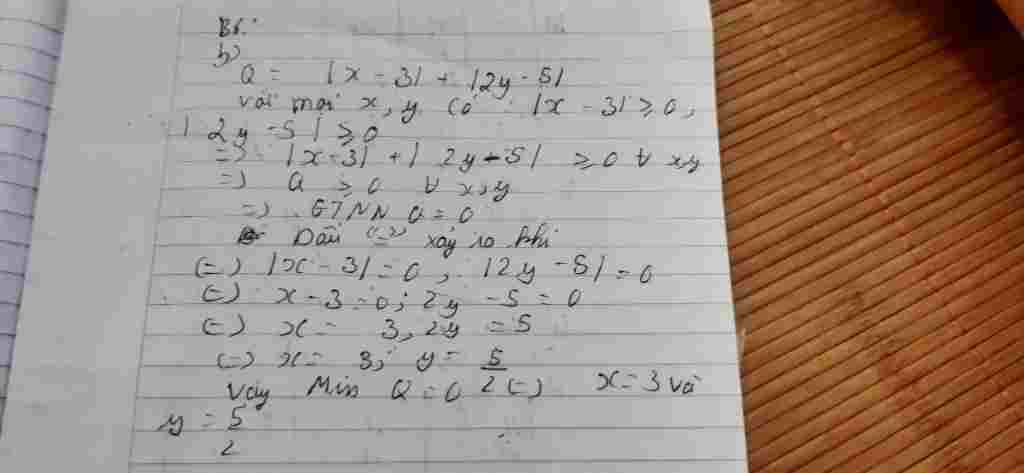 B6:
b)
Q = |x - 3| + |2y - 5|
Với mọi x, y có |x - 3| ≥ 0,
|2y - 5| ≥ 0
=> |x - 3| + |2y - 5| ≥ 0 ∀ x,y
=> Q ≥ 0 ∀ x,y
=> GTNN Q = 0
Dấu "=" xảy ra khi
(=) |x - 3| = 0, |2y - 5| = 0
(=) x - 3 = 0; 2y - 5 = 0
(=) x = 3, 2y = 5
(=) x = 3; y = 5/2
Vậy Min Q = 0 (=) x = 3 và
y = 5/2